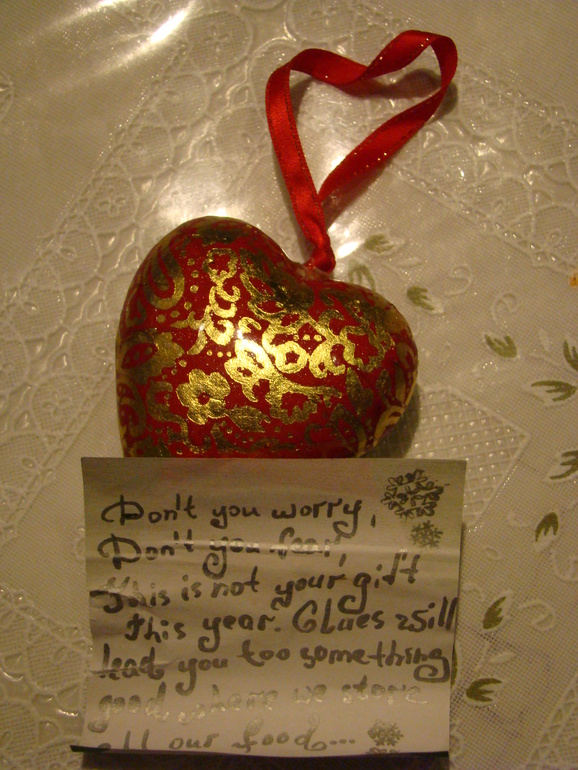 Don't you worry,
Don't you fear,
this is not your gift
this year. Glues will
lead you too something
good, where we store
all our food...